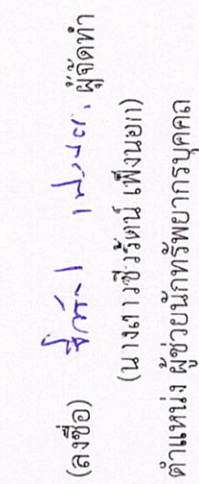 (ลงชื่อ) ผู้จัดทำ
(นางเสาวชีวรัตน์ เพ็งนอก)
ตำแหน่ง ผู้ช่วยนักทรัพยากรบุคคล